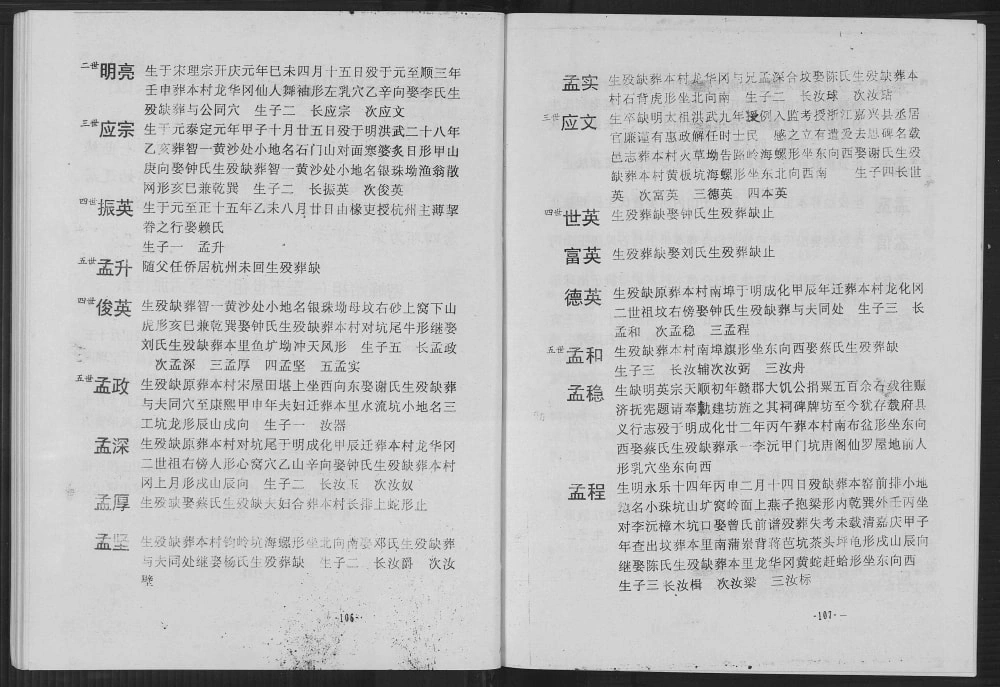 二世明亮 生于宋理宗开庆元年巳未四月十五日殁于元至顺三年
壬申葬本村龙华冈仙人舞袖形左乳穴乙辛向娶李氏生
殁缺葬与公同穴 生子二 长应宗 次应文
三世应宗 生于元泰定元年甲子十月廿五日殁于明洪武二十八年
乙亥葬智一黄沙处小地名石门山对面寒婆炙日形甲山
庚向娶钟氏生殁缺葬智一黄沙处小地名银珠坳渔翁散
网形亥巳兼乾巽 生子二 长振英 次俊英
四世振英 生于元至正十五年乙未八月廿日由椽吏授杭州主薄挈
眷之行娶赖氏
生子一 孟升
五世孟升 随父任侨居杭州未回生殁葬缺
四世俊英 生殁缺葬智一黄沙处小地名银珠坳母坟右砂上窝下山
虎形亥巳兼乾巽娶钟氏生殁缺葬本村对坑尾牛形继娶
刘氏生殁缺葬本里鱼圹坳冲天凤形 生子五 长孟政
次孟深 三孟厚 四孟坚 五孟实
五世孟政 生殁缺原葬本村宋屋田堪上坐西向东娶谢氏生殁缺葬
与夫同穴至康熙甲申年夫妇迁葬本里水流坑小地名三
工坑龙形辰山戌向 生子一 汝器
孟深 生殁缺原葬本村对坑尾于明成化甲辰迁葬本村龙华冈
二世祖右傍人形心窝穴乙山辛向娶钟氏生殁缺葬本村
冈上月形戌山辰向 生子二 长汝玉 次汝奴
孟厚 生殁缺娶蔡氏生殁缺夫妇合葬本村长排上蛇形止
孟坚 生殁缺葬本村钧岭坑海螺形坐北向南娶邓氏生殁缺葬
与夫同处继娶杨氏生殁葬缺 生子二 长汝爵 次汝
璧
-106-
孟实 生殁缺葬本村龙华冈与兄孟深合坟娶陈氏生殁缺葬本
村石背虎形坐北向南 生子二 长汝球 次汝玷
三世应文 生卒缺明太祖洪武九年援例入监考授浙江嘉兴县丞居
官廉谨有惠政解任时士民 感之立有遗爱去思碑名载
邑志葬本村火草坳告路岭海螺形坐东向西娶谢氏生殁
缺葬本村黄板坑海螺形坐东北向西南 生子四长世
英 次富英 三德英 四本英
四世世英 生殁葬缺娶钟氏生殁葬缺止
富英 生殁葬缺娶刘氏生殁葬缺止
德英 生殁缺原葬本村南埠于明成化甲辰年迁葬本村龙化冈
二世祖坟右傍娶钟氏生殁缺葬与夫同处 生子三 长
孟和 次孟稳 三孟程
五世孟和 生殁缺葬本村南埠旗形坐东向西娶蔡氏生殁葬缺
生子三 长汝辅次汝弼 三汝舟
孟稳 生缺明英宗天顺初年赣郡大饥公捐粟五百余石载往赈
济抚宪题请奉勅建坊旌之其祠碑牌坊至今犹存载府县
义行志殁于明成化廿二年丙午葬本村南布盆形坐东向
西娶蔡氏生殁缺葬承一李沅甲门坑唐阁仙罗屋地前人
形乳穴坐东向西
孟程 生明永乐十四年丙申二月十四日殁缺葬本窑前排小地
地名小珠坑山圹窝岭面上燕子抱梁形内乾巽外壬丙坐
对李沅樟木坑口娶曾氏前谱殁葬失考未载清嘉庆甲子
年查出坟葬本里南蒲岽背蒋芭坑茶头坪龟形戌山辰向
继娶陈氏生殁缺葬本里龙华冈黄蛇赶蛤形坐东向西
生子三 长汝楫 次汝梁 三汝标
-107-